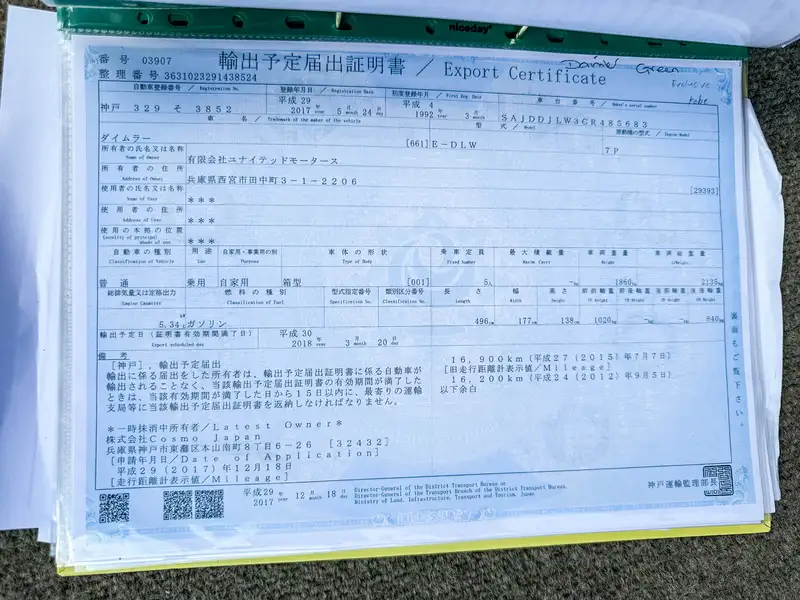 niceday
番 号 03907
輸出予定届出証明書 / Export Certificate
Green
整理番号 3631023291438524
自動車登録番号 / Registration No.
登録年月日 / Registration Date
初度登録年月 / First Reg. Date
車 台 番 号 / Maker's serial number
神戸 329 そ 3852
平成 29
2017 年 year 5 月 month 24 日 day
平成 4
1992 年 year 3 月 month
SAJDDJLW3CR485683
車 名 / Trademark of the maker of the vehicle
型 式 / Model
原動機の型式 / Engine Model
ダイムラー
[661] E-DLW
7P
所有者の氏名又は名称
Name of Owner
有限会社ユナイテッドモータース
所有者の住所
Address of Owner
兵庫県西宮市田中町3-1-2206
[29393]
使用者の氏名又は名称
Name of User
***
使用者の住所
Address of User
***
使用の本拠の位置
Locality of principal abode of use
***
自動車の種別
用途
自家用・事業用の別
車体の形状
乗車定員
最大積載量
車両重量
車両総重量
Classification of Vehicle
Use
Purpose
Type of Body
Fixed Number
Maxim Carry
Weight
G/Weight
普通
乗用
自家用
箱型
[001]
5人
-kg
1860kg
2135kg
総排気量又は定格出力
燃料の種別
型式指定番号
類別区分番号
長さ
幅
高さ
前前軸重
前後軸重
後前軸重
後後軸重
Engine Capacity
Classification of Fuel
Specification No.
Classification No.
Length
Width
Height
FF Weight
FR Weight
RF Weight
RR Weight
5.34
ガソリン
496cm
177cm
138cm
1020kg
-kg
-kg
840kg
輸出予定日(証明書有効期間満了日)
Export scheduled day
平成 30
2018 年 year 3 月 month 20 日 day
備 考
[神戸], 輸出予定届出
輸出に係る届出をした所有者は、輸出予定届出証明書に係る自動車が
輸出されることなく、当該輸出予定届出証明書の有効期間が満了した
ときは、当該有効期間が満了した日から15日以内に、最寄りの運輸
支局等に当該輸出予定届出証明書を返納しなければなりません。
*一時抹消中所有者/Latest Owner*
株式会社Cosmo Japan
兵庫県神戸市東灘区本山南町8丁目6-26 [32432]
[申請年月日/Date of Application]
平成29(2017)年12月18日
[走行距離計表示値/Mileage]
16,900km(平成27(2015)年7月7日)
[旧走行距離計表示値/Mileage]
16,200km(平成24(2012)年9月5日)
以下余白
裏面もご覧下さい。
平成29 年 year 12 月 month 18 日 day
2017
Director-General of the District Transport Bureau or
Director-General of the Transport Branch of the District Transport Bureau,
Ministry of Land, Infrastructure, Transport and Tourism, Japan
神戸運輸監理部長